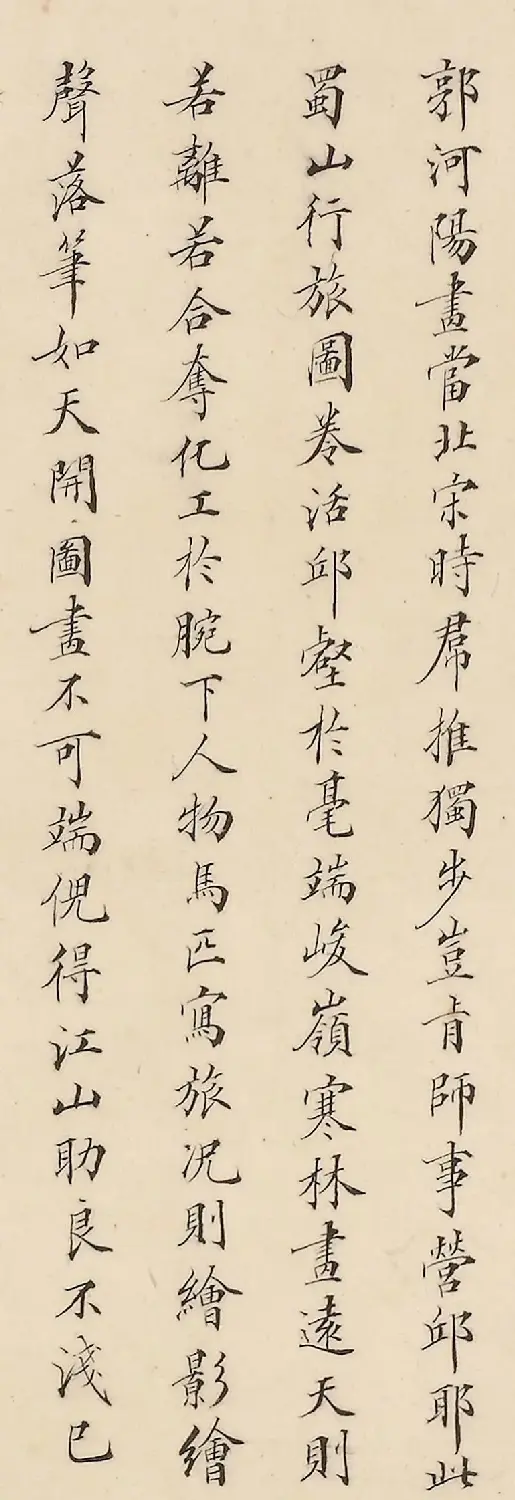 郭河陽畫當北宋時羣推獨步豈肯師事營邱耶此
蜀山行旅圖卷活邱壑於毫端峻嶺寒林畫遠天則
若離若合奪化工於腕下人物馬匹寫旅况則繪影繪
聲落筆如天開圖畫不可端倪得江山助良不淺已